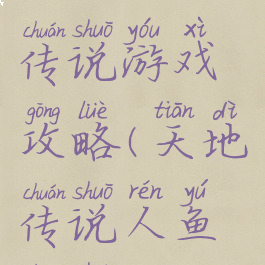 chuán shuō yóu xì
传说游戏
gōng lüè tiān dì
攻略(天地
chuán shuō rén yú
传说人鱼